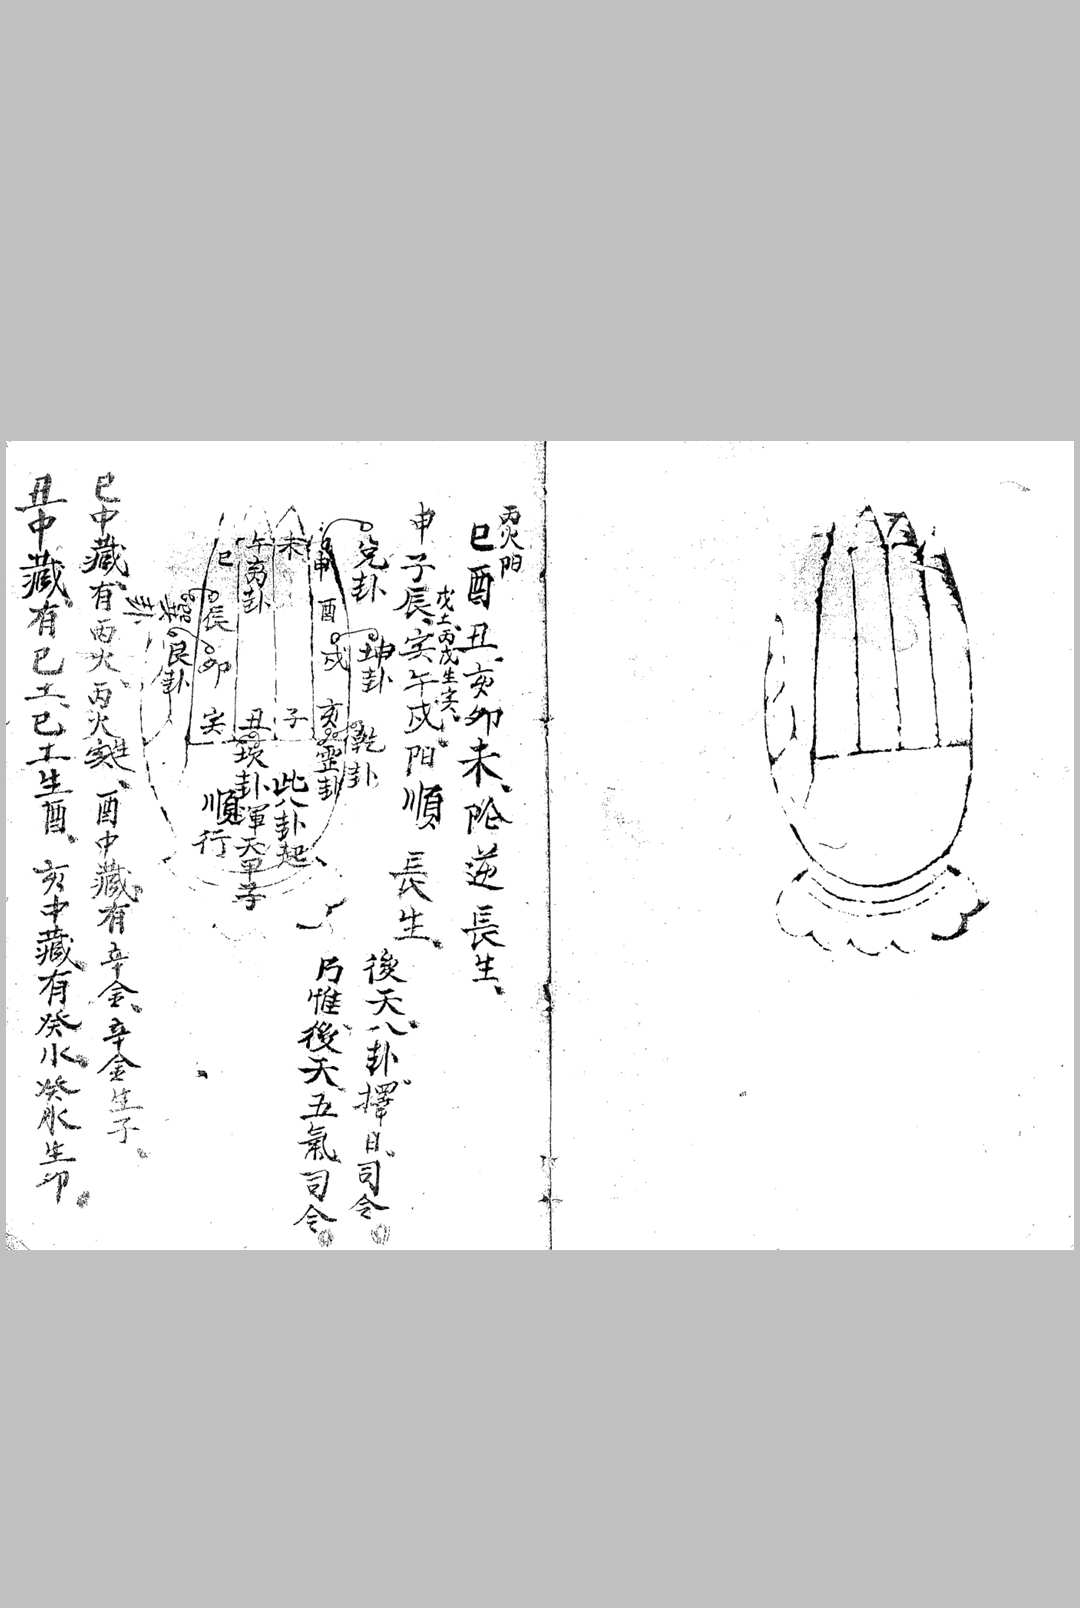 丙火門
巳酉丑、亥卯未、陰逆長生、
戊土丙戊生寅、
申子辰、寅午戌、陽順長生、
後天八卦擇日司令
乃惟後天五氣司令
兌卦
坤卦
乾卦
申
酉
戌
亥
震卦
未
子
此八卦起
午离卦
丑
坎卦渾天甲子
巳
辰
卯
寅
順行
巽
卦
艮卦
巳中藏有丙火、丙火寅生、酉中藏有辛金、辛金生子、
丑中藏有巳土、巳土生酉、亥中藏有癸水、癸水生卯、